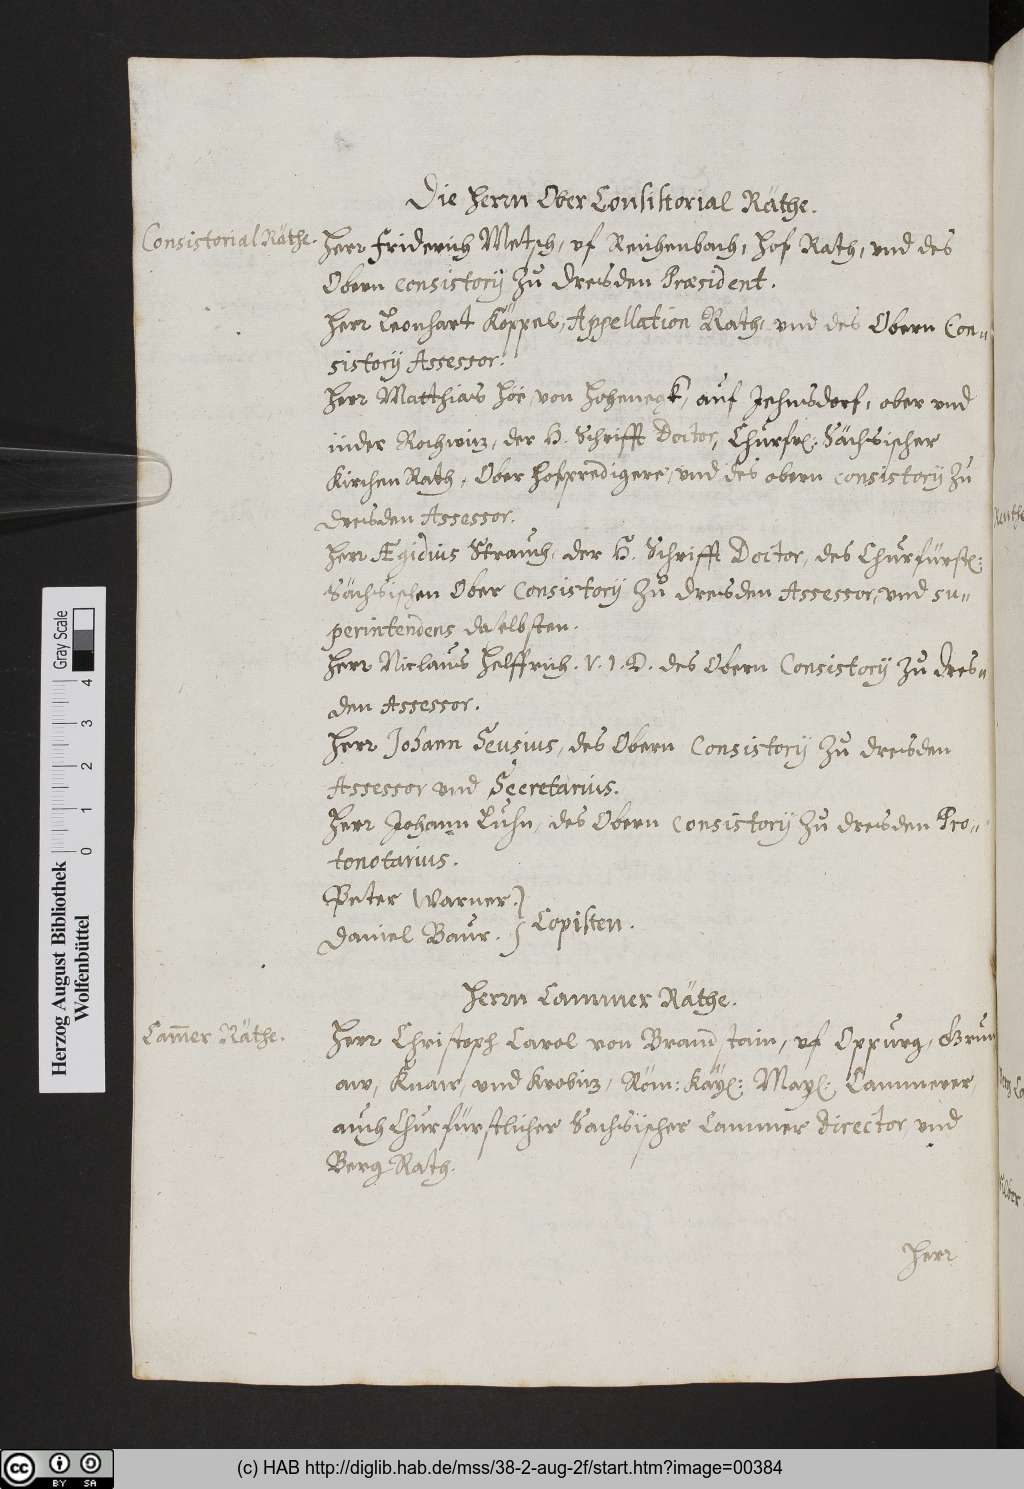 Die Herrn Ober Consistorial Räthe.
Consistorial Räthe.
Herr Friderich Metsch, vf Reichenbach, Hof Rath, vnd des
Obern Consistorij zu Dresden Præsident.
Herr Leonhart Köppel, Appellation Rath, vnd des Obern Con=
sistorij Assessor.
Herr Matthias Höe von Hohenegk, auf Jehmsdorf, ober vnd
nider Rochwitz, der H. Schrifft Doctor, Churfl: Sächsischer
Kirchen Rath, Ober Hofpredigere, vnd des obern Consistorij zu
Dresden Assessor.
Herr Ægidius Strauch, der H. Schrifft Doctor, des Churfürstl:
Sächsischen Ober Consistorij zu Dresden Assessor, vnd su=
perintendens daselbsten.
Herr Niclaus Helffrich. V. I. D. des Obern Consistorij zu Dres=
den Assessor.
Herr Johann Seusius, des Obern Consistorij zu Dresden
Assessor vnd Secretarius.
Herr Johann Luhn, des Obern Consistorij zu Dresden Pro=
tonotarius.
Peter Warner.
Daniel Baur.
Copisten.
Herrn Cammer Räthe.
Cam̅er Räthe.
Herr Christoph Carol von Brandstain, vf Oppurg, Grun
aw, Knaw, vnd Krobitz, Röm: Käyl: Mayl: Cammerer,
auch Churfürstlicher Sachsischer Cammer Director vnd
Berg Rath.
Herr
Herzog August Bibliothek
Wolfenbüttel
Gray Scale
0 1 2 3 4
(c) HAB http://diglib.hab.de/mss/38-2-aug-2f/start.htm?image=00384
cc BY SA